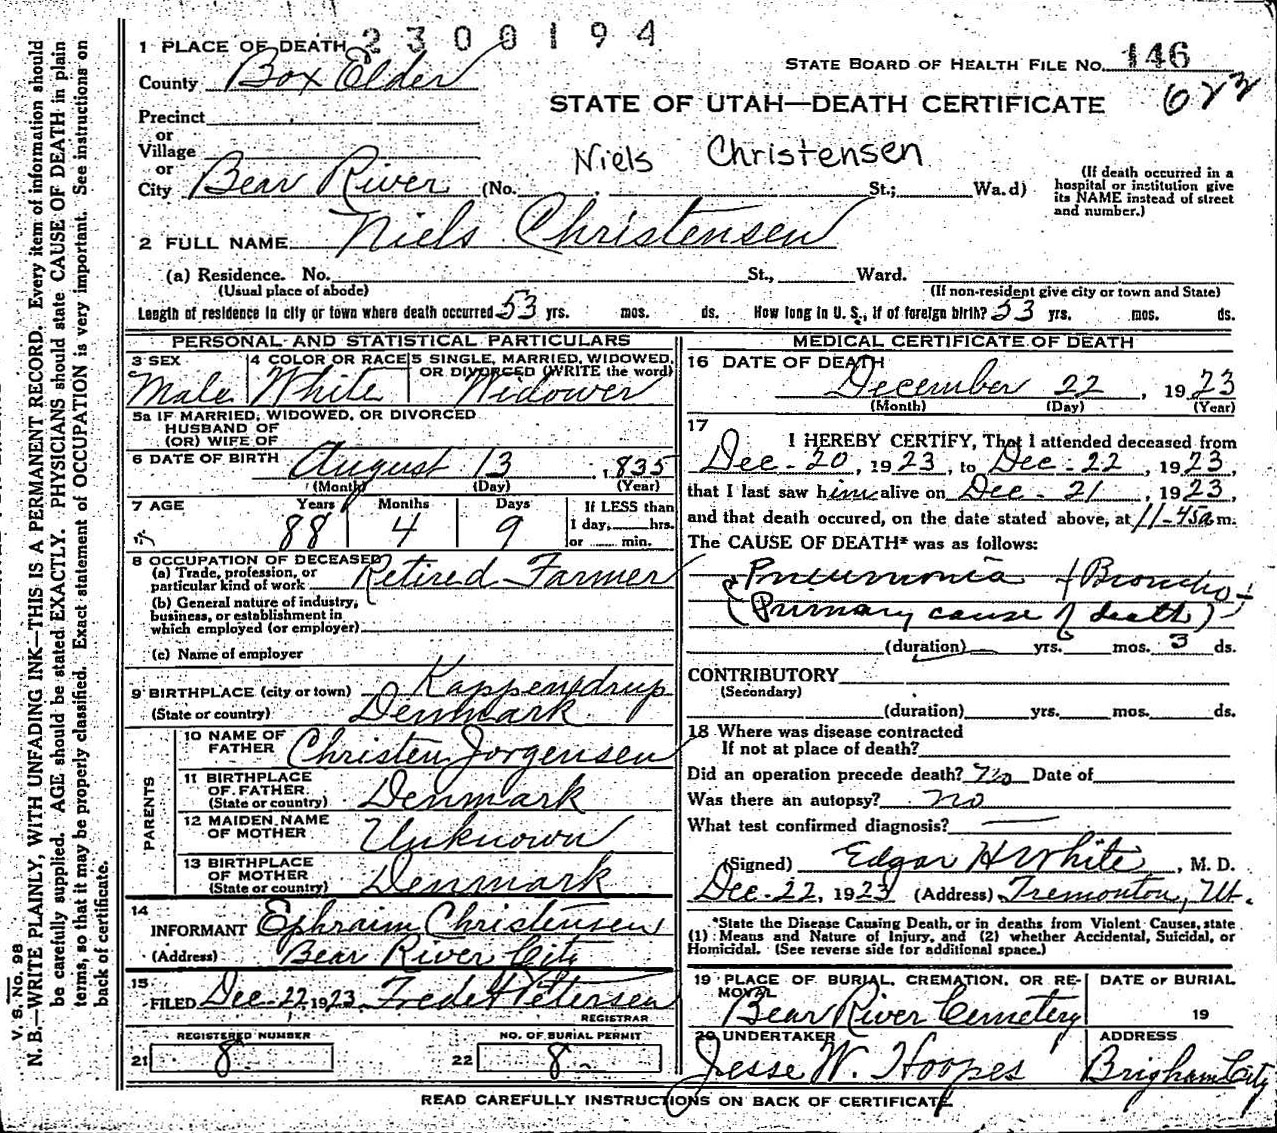 2300194
1 PLACE OF DEATH
County Box Elder
STATE BOARD OF HEALTH FILE No. 146
622
STATE OF UTAH—DEATH CERTIFICATE
Precinct
or
Village
or
City Bear River (No. St.; Wa.d)
Niels Christensen
(If death occurred in a
hospital or institution give
its NAME instead of street
and number.)
2 FULL NAME Niels Christensen
(a) Residence. No. St., Ward.
(Usual place of abode) (If non-resident give city or town and State)
Length of residence in city or town where death occurred 53 yrs. mos. ds. How long in U. S., if of foreign birth? 53 yrs. mos. ds.
PERSONAL AND STATISTICAL PARTICULARS
3 SEX 4 COLOR OR RACE 5 SINGLE, MARRIED, WIDOWED,
OR DIVORCED (WRITE the word)
Male White Widower
5a IF MARRIED, WIDOWED, OR DIVORCED
HUSBAND OF
(OR) WIFE OF
6 DATE OF BIRTH August 13, 1835
(Month) (Day) (Year)
7 AGE Years Months Days If LESS than
1 day, hrs.
88 4 9 or min.
8 OCCUPATION OF DECEASED
(a) Trade, profession, or
particular kind of work Retired Farmer
(b) General nature of industry,
business, or establishment in
which employed (or employer)
(c) Name of employer
9 BIRTHPLACE (city or town) Kappendrup
(State or country) Denmark
PARENTS
10 NAME OF
FATHER Christen Jorgensen
11 BIRTHPLACE
OF FATHER
(State or country) Denmark
12 MAIDEN NAME
OF MOTHER Unknown
13 BIRTHPLACE
OF MOTHER
(State or country) Denmark
14
INFORMANT Ephraim Christensen
(Address) Bear River City
15
FILED Dec-22 1923 Fred H Petersen
REGISTRAR
REGISTERED NUMBER NO. OF BURIAL PERMIT
21 8 22 8
MEDICAL CERTIFICATE OF DEATH
16 DATE OF DEATH
December 22, 1923
(Month) (Day) (Year)
17
I HEREBY CERTIFY, That I attended deceased from
Dec-20, 1923, to Dec-22, 1923,
that I last saw him alive on Dec-21, 1923,
and that death occured, on the date stated above, at 11-45a m.
The CAUSE OF DEATH* was as follows:
Pneumonia Broncho
(Primary cause of death)
(duration) yrs. mos. 3 ds.
CONTRIBUTORY
(Secondary)
(duration) yrs. mos. ds.
18 Where was disease contracted
If not at place of death?
Did an operation precede death? No Date of
Was there an autopsy? no
What test confirmed diagnosis?
(Signed) Edgar H White, M. D.
Dec-22, 1923 (Address) Tremonton, Ut.
*State the Disease Causing Death, or in deaths from Violent Causes, state
(1) Means and Nature of Injury, and (2) whether Accidental, Suicidal, or
Homicidal. (See reverse side for additional space.)
19 PLACE OF BURIAL, CREMATION, OR RE-
MOVAL
DATE OF BURIAL
Bear River Cemetery 19
20 UNDERTAKER ADDRESS
Jesse W. Hoopes Brigham City
READ CAREFULLY INSTRUCTIONS ON BACK OF CERTIFICATE
V. S. No. 98
N. B.—WRITE PLAINLY, WITH UNFADING INK—THIS IS A PERMANENT RECORD. Every item of information should
be carefully supplied. AGE should be stated EXACTLY. PHYSICIANS should state CAUSE OF DEATH in plain
terms, so that it may be properly classified. Exact statement of OCCUPATION is very important. See instructions on
back of certificate.